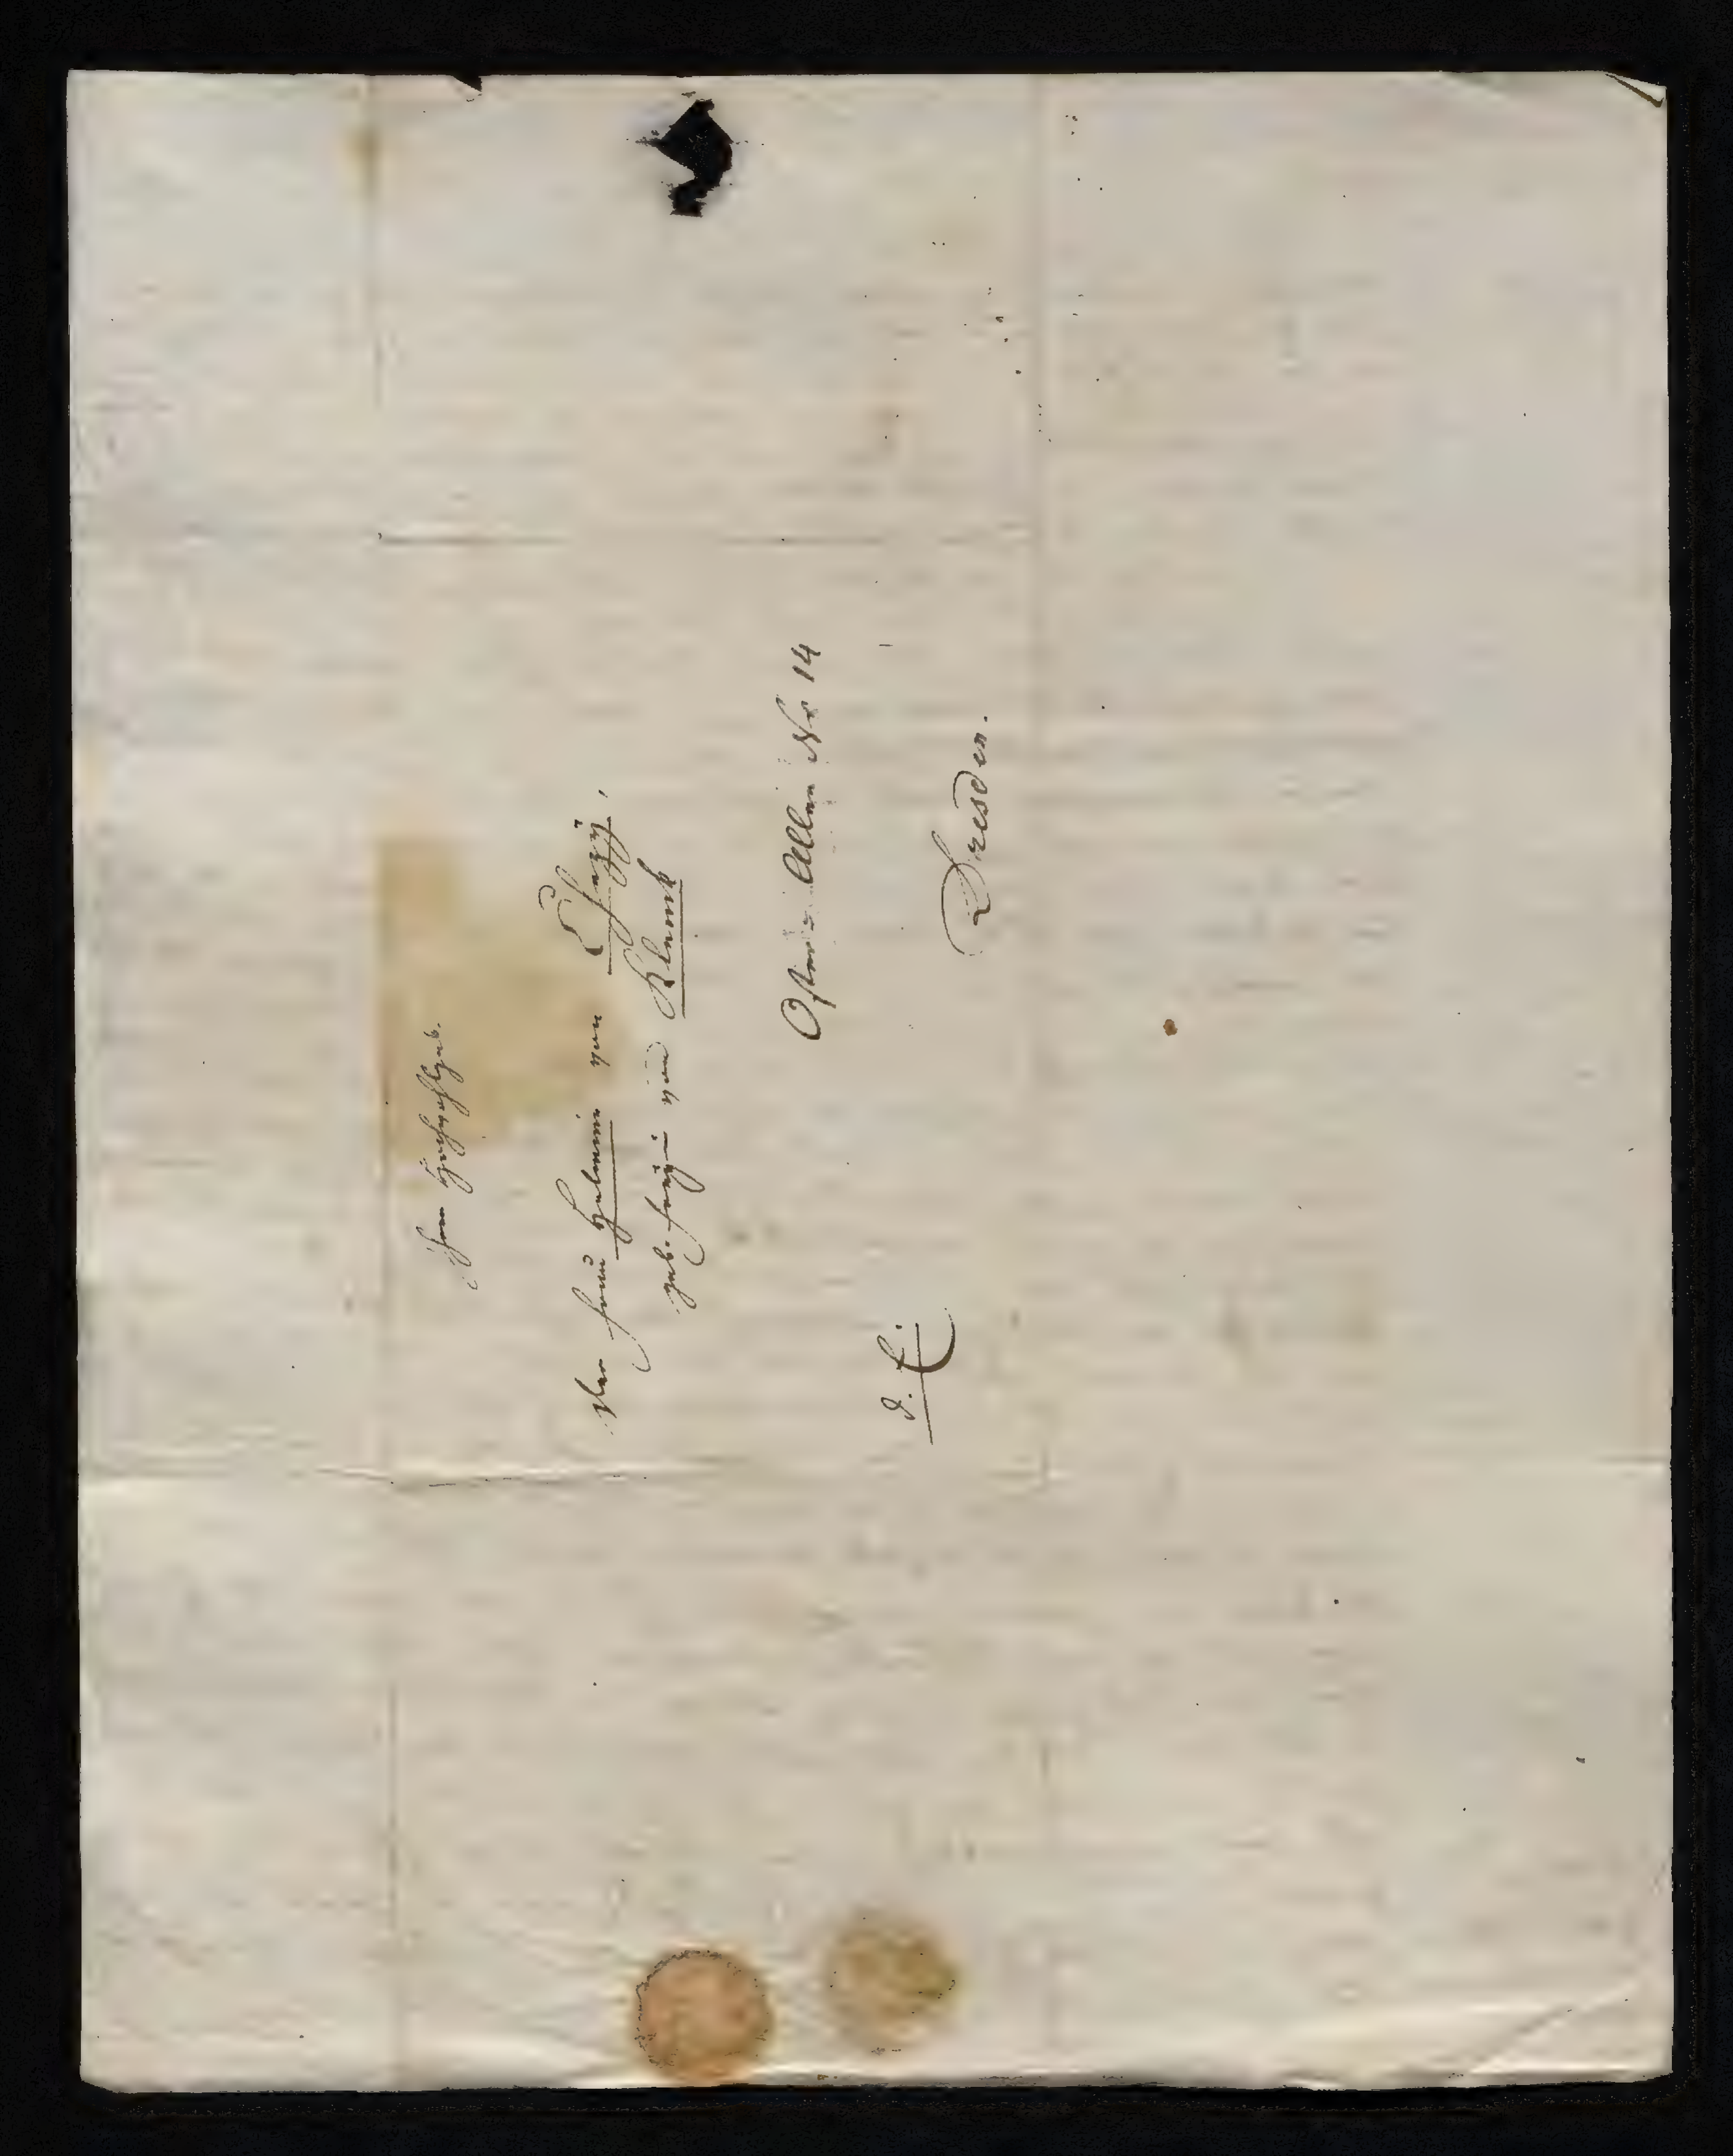 Ihro Hochwohlgeb.
der Frau Helmine von Chezy,
geb. Freyin von Klenck
Ostra Allee Nr 14
Dresden.
d. E.